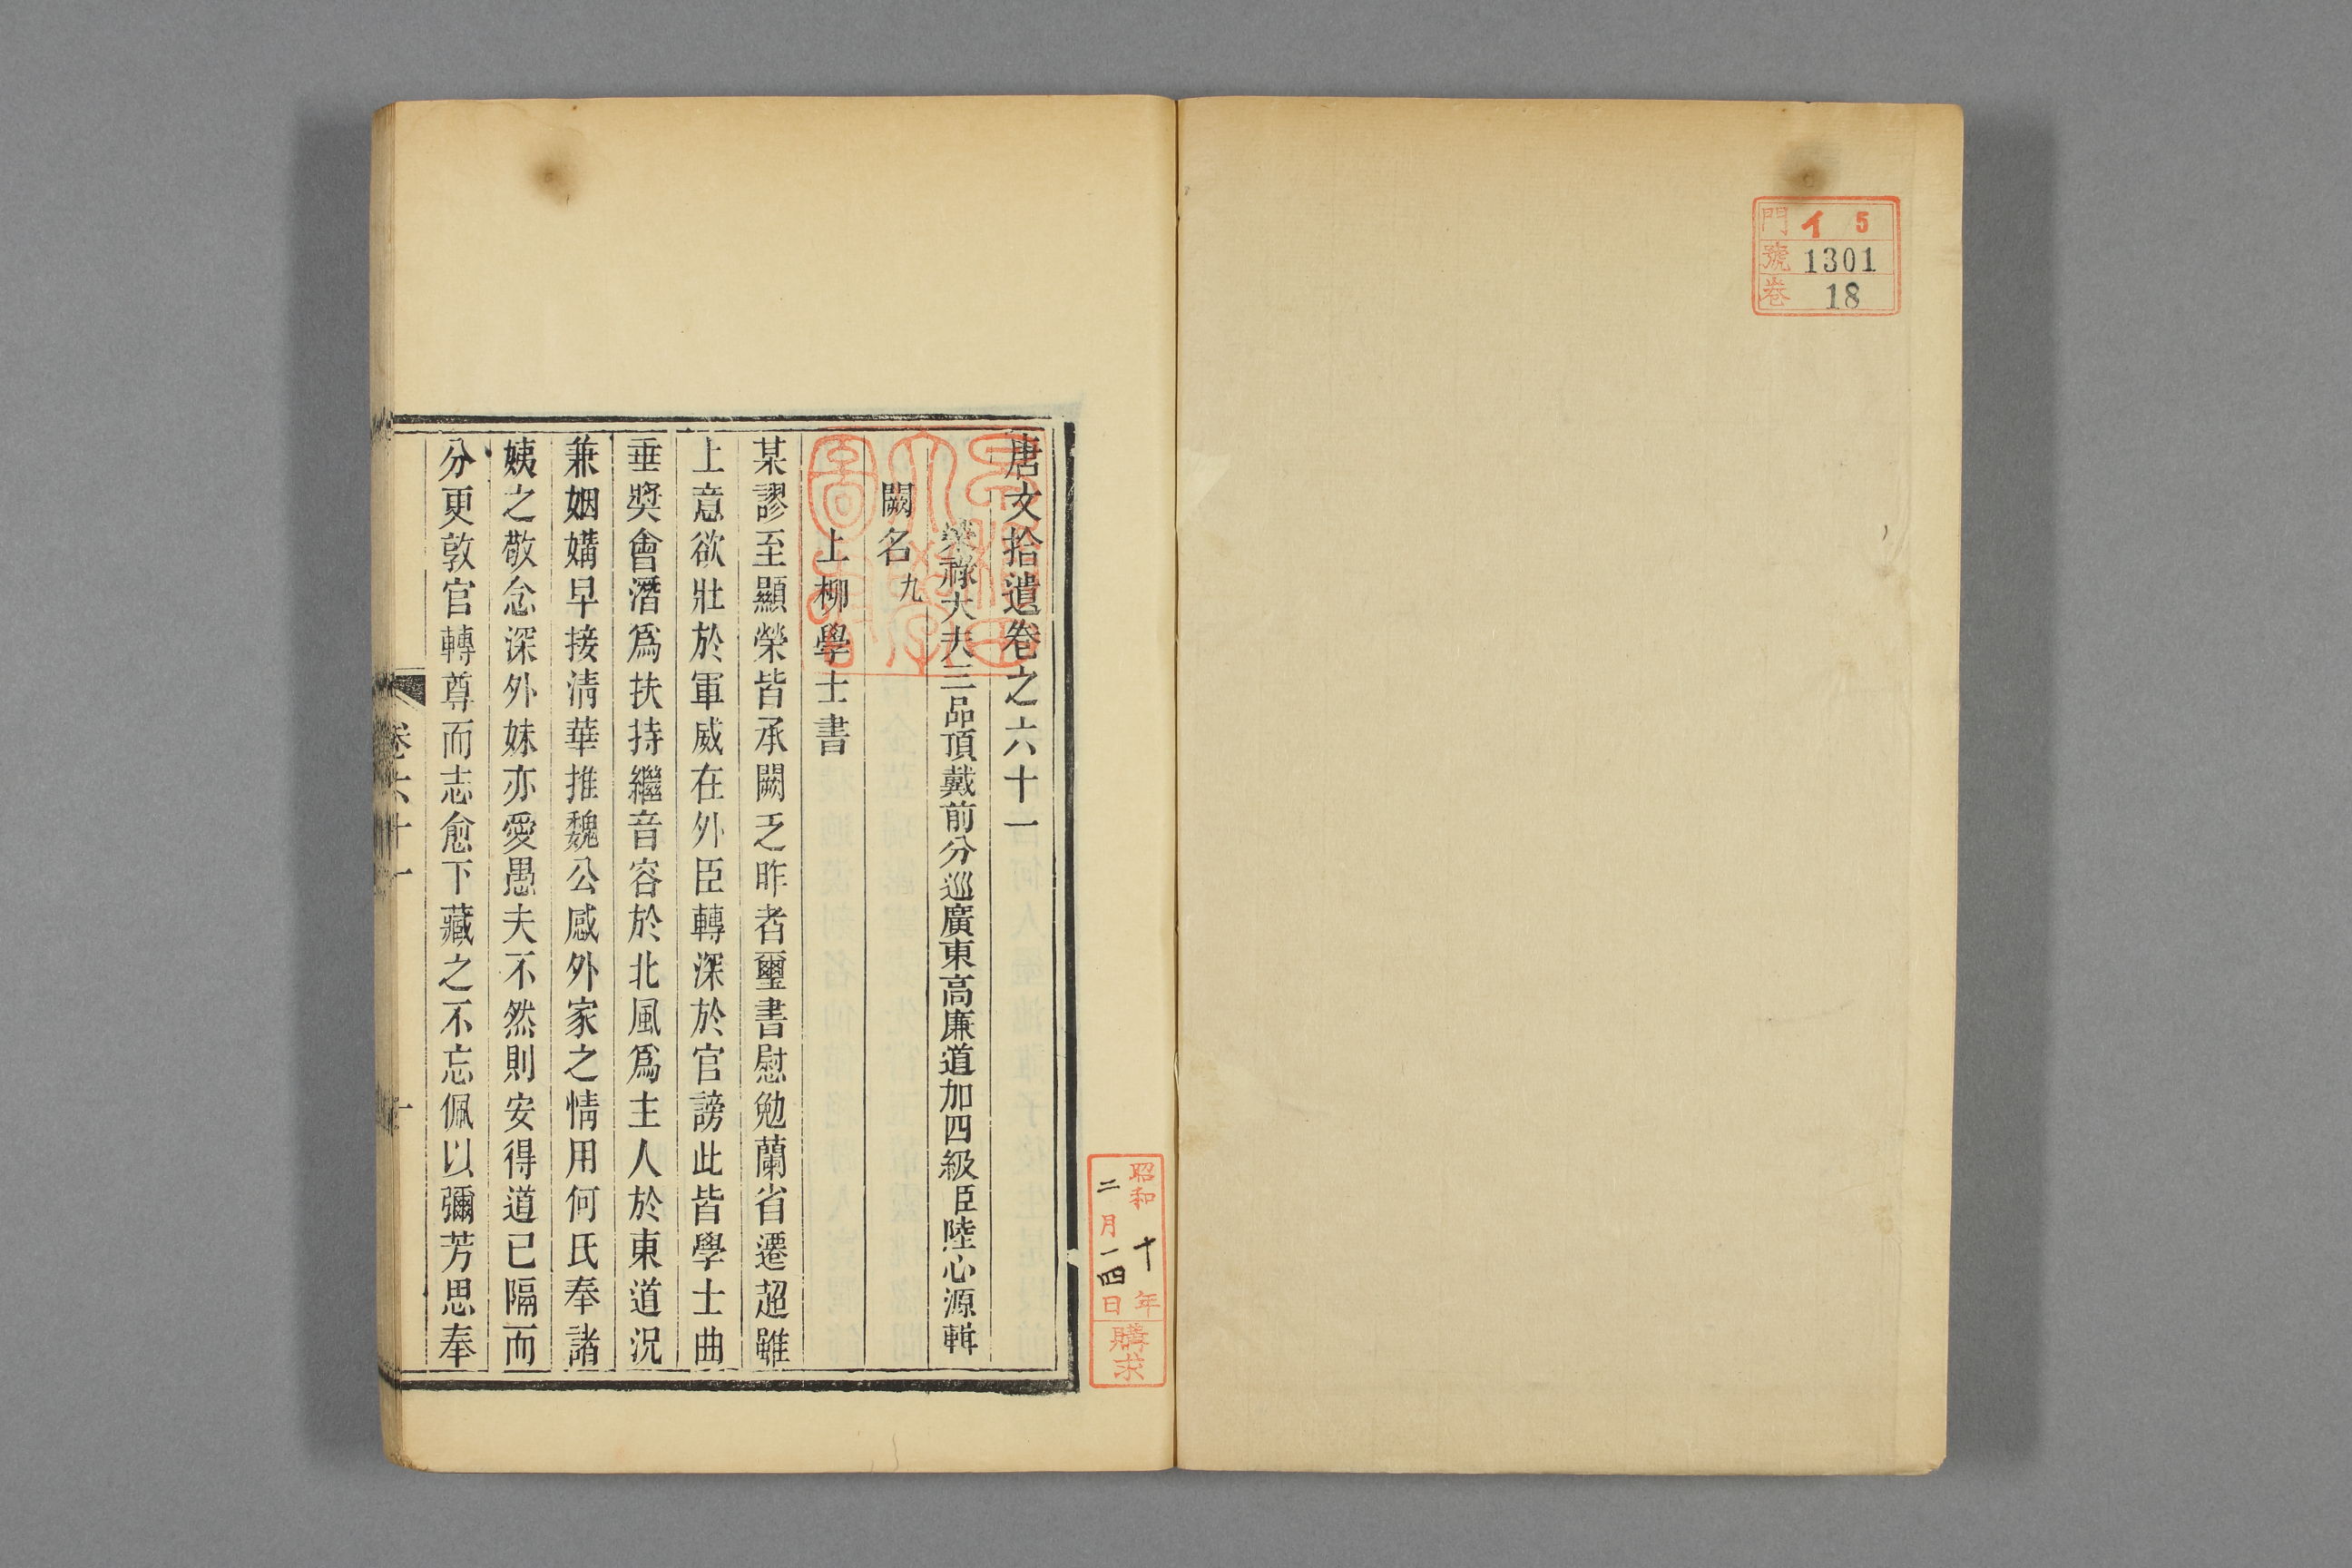 門 イ 5
號 1301
卷 18
昭和十年
二月一四日
購求
早稲田
大學
圖書
唐文拾遺卷之六十一
榮祿大夫三品頂戴前分巡廣東高廉道加四級臣陸心源輯
闕名九
上柳學士書
某謬至顯榮皆承闕乏昨者璽書慰勉蘭省遷超雖
上意欲壯於軍威在外臣轉深於官謗此皆學士曲
垂獎會潛爲扶持繼音容於北風爲主人於東道況
兼姻媾早接淸華推魏公感外家之情用何氏奉諸
姨之敬念深外妹亦愛愚夫不然則安得道已隔而
分更敦官轉尊而志愈下藏之不忘佩以彌芳思奉
卷六十一
一